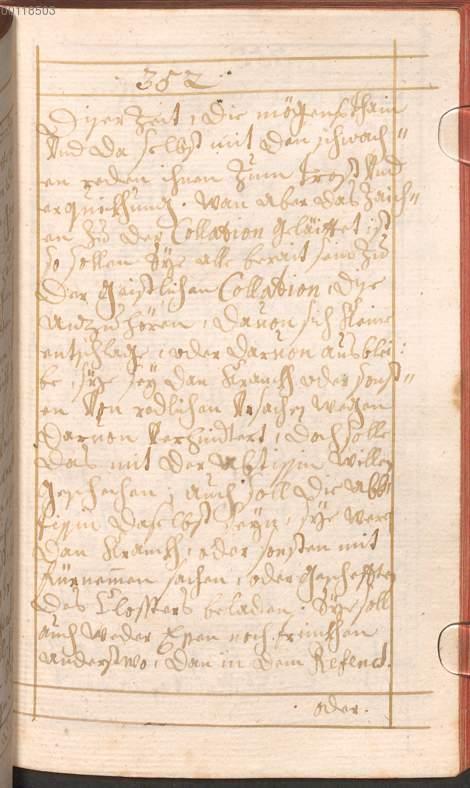 00118503
352
Diser Zeit, die mögens thain
Vnd da selbst mit den schwach=
en reden ihnen Zum trost Vnd
erquickhung. Wan aber das Zaich=
en Zu der Collation geläittet ist
so sollen Sÿe alle berait sein Zu
der geistlichen Collation, dise
anzuhören, dauon sich kheine
entschlage, oder daruon ausblei:
be, sÿe seÿ dan kranckh oder sonst=
en Von redlichen Vrsachen wegen
daruon Verhindtert, doch solle
das mit der Abtissin willen
geschechen, auch soll die Abb=
tissin daselbst seÿn, sÿe were
dan kranckh, oder sonsten mit
fürnemen sachen, oder geschefften
des Closters beladen. Sÿe soll
auch weder Essen noch trinckhen
anderstwo, dan in dem Refend.
oder.